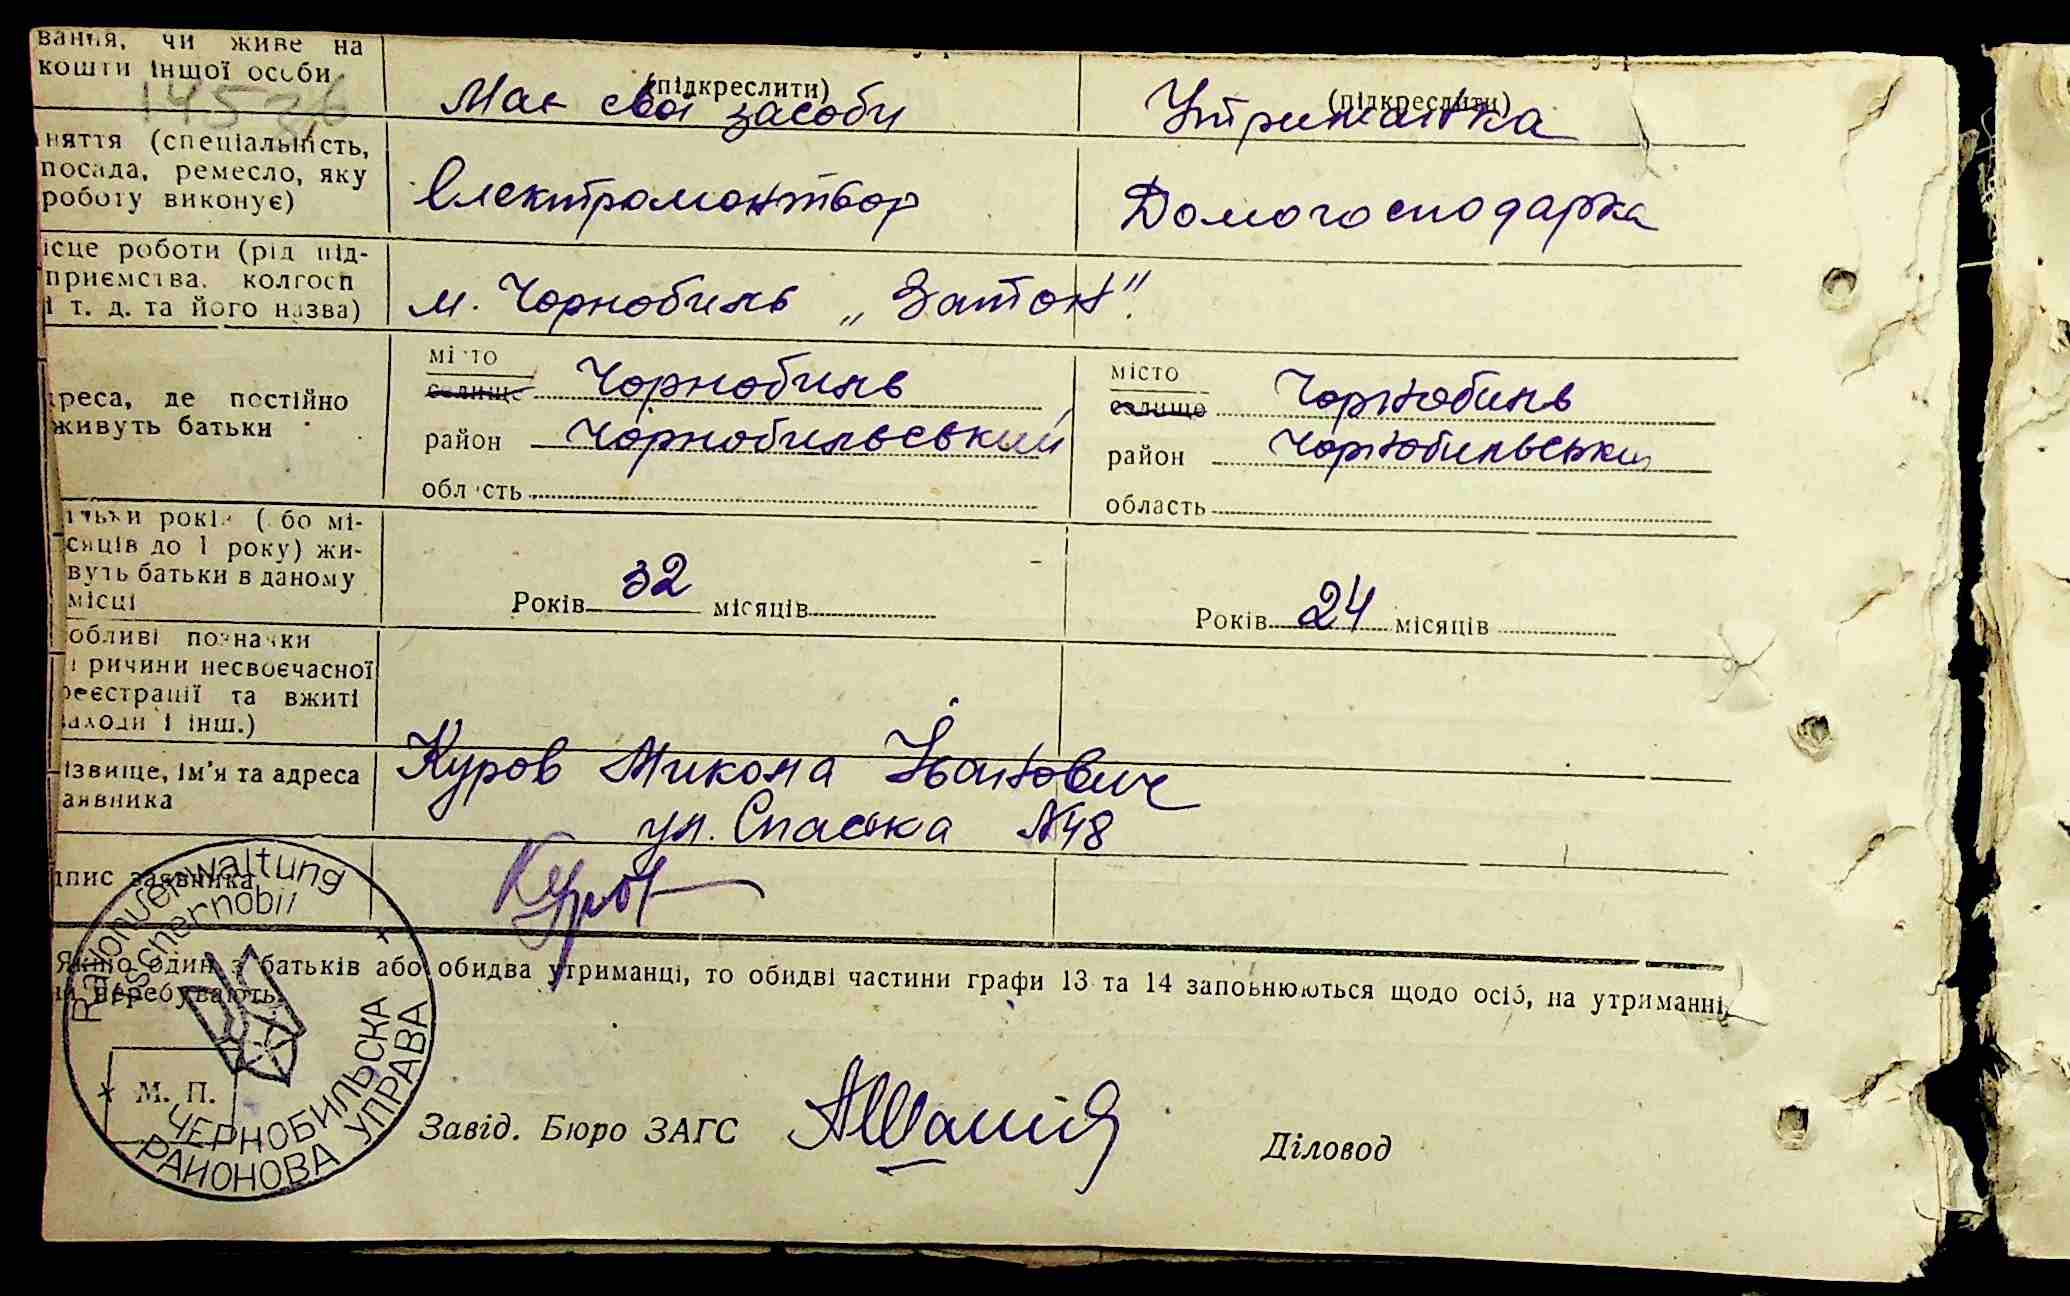 вання, чи живе на
кошти іншої особи
(підкреслити) (підкреслити)
Має свої засоби Утриманка
няття (спеціальність,
посада, ремесло, яку
роботу виконує)
Електромонтьор Домогосподарка
ісце роботи (рід під-
приємства, колгосп
і т. д. та його назва)
м. Чорнобиль „Затон".
реса, де постійно
живуть батьки
місто Чорнобиль місто Чорнобиль
селище селище
район Чорнобильський район Чорнобильський
область область
ільки років (або мі-
сяців до 1 року) жи-
вуть батьки в даному
місці
Років 32 місяців Років 24 місяців
обливі позначки
ричини несвоєчасної
реєстрації та вжиті
аходи і інш.)
ізвище, ім'я та адреса
аявника
Куров Микола Іванович
ул. Спаська №48
дпис заявника
Куров
Якщо один з батьків або обидва утриманці, то обидві частини графи 13 та 14 заповнюються щодо осіб, на утриманні
перебувають.
М. П.
Завід. Бюро ЗАГС Діловод
Rayonuerwaltung
Tschernobil
ЧЕРНОБИЛЬСКА
РАЙОНОВА УПРАВА